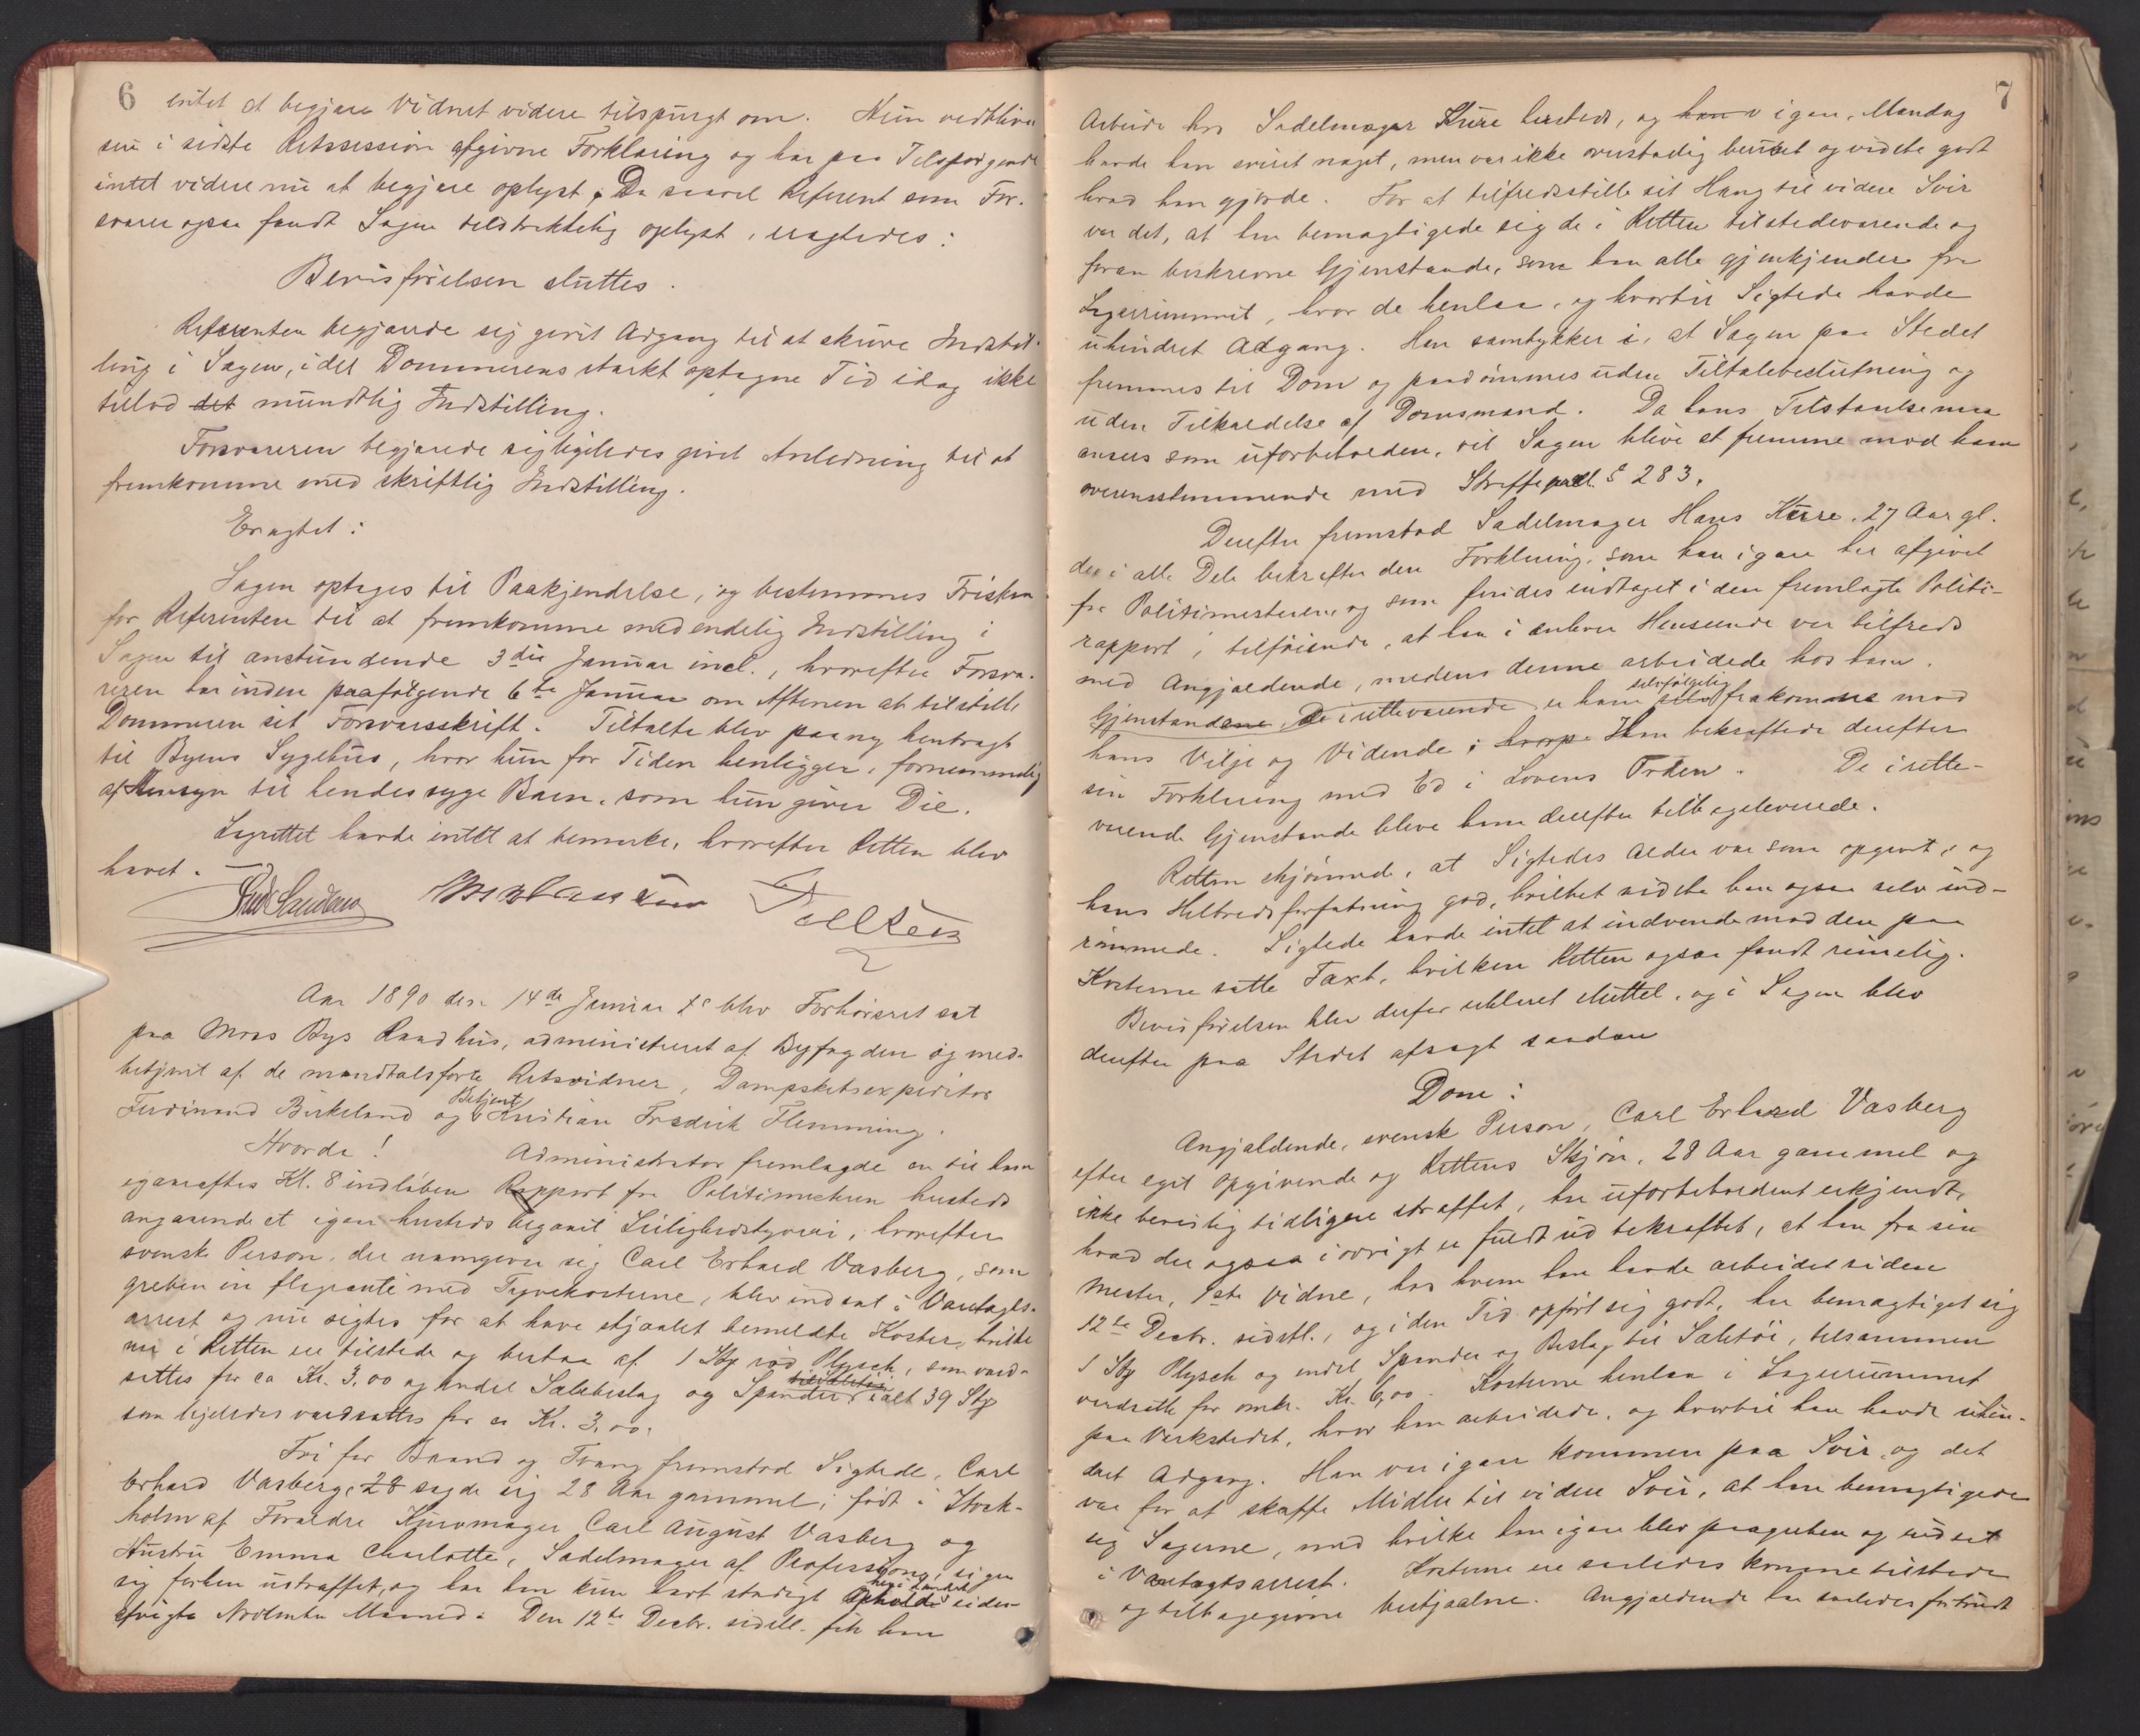 6
intet at begjære Vidnet videre tilspurgt om. Hun vedbliver
sin i sidste Retssession afgivne Forklaring og har paa Tilspørgende
intet videre nu at begjære oplyst. Da saavel Referent som For-
svarer ogsaa fandt Sagen tilstrækkelig oplyst, eragtedes:
Bevisførelsen sluttes.
Referenten begjærede sig givet Adgang til at skrive Indstil-
ling i Sagen, idet Dommerens stærkt optagne Tid idag ikke
tillod det mundtlig Indstilling.
Forsvareren begjærede sig ligeledes givet Anledning til at
fremkomme med skriftlig Indstilling.
Eragtet:
Sagen optages til Paakjendelse, og bestemmes Fristen
for Referenten til at fremkomme med endelig Indstilling i
Sagen til anstundende 3die Januar incl., hvorefter Forsva-
reren har inden paafølgende 6te Januar om Aftenen at tilstille
Dommeren sit Forsvarsskrift. Tiltalte blev paany henbragt
til Byens Sygehus, hvor hun for Tiden henligger, fornemmelig
af Hensyn til hendes syge Barn, som hun giver Die.
Lagrettet havde intet at bemærke, hvorefter Retten blev
hævet.
Aar 1890 den 14de Januar blev Forhørsret sat
paa Moss Bys Raadhus, administreret af Byfogden og med-
betjent af de mandtalsførte Retsvidner, Dampskibsexpeditør
Ferdinand Birkeland og Betjent Kristian Fredrik Flemming.
Hvorda! Administrator fremlagde en til ham
igaaraftes Kl. 8 indløben Rapport fra Politimesteren hersteds
angaaende et igaar hersteds begaaet Leilighedstyveri, hvorefter
svensk Person, der navngiver sig Carl Erhard Vasberg, som
greben in flagranti med Tyvekosterne, blev indsat i Varetægts-
arrest og nu sigtes for at have stjaalet bemeldte Koster, hvilke
nu i Retten ere tilstede og bestaa af 1 Stk rød Plysch, som værd-
sættes for ca Kr. 3,00 og endel Selebeslag og Spænder ialt 39 Stk
som ligeledes værdsættes for ca Kr. 3,00.
Fri for Baand og Tvang fremstod Sigtede, Carl
Erhard Vasberg, 28 sagde sig 28 Aar gammel, født i Stock-
holm af Forældre Kurvmager Carl August Vasberg og
Hustru Emma Charlotte, Sadelmager af Profession, siger
sig forhen ustraffet, og har han kun havt stadigt Ophold her i Landet siden
afvigte Novbmber Maaned. Den 12te Decbr. sidstl. fik han
7
Arbeide hos Sadelmager Kure hersteds, og han igaar, Mandag
havde han sviret noget, men var ikke overstadig beruset og vidste godt
hvad han gjorde. For at tilfredsstille sit Hang til videre Svir
var det, at han bemægtigede sig de i Retten tilstedeværende og
foran beskrevne Gjenstande, som han alle gjenkjender fra
Lagerrummet, hvor de henlaa, og hvortil Sigtede havde
uhindret Adgang. Han samtykker i, at Sagen paa Stedet
fremmes til Dom og paadømmes uden Tiltalebeslutning og
uden Tilkaldelse af Domsmænd. Da hans Tilstaaelse maa
ansees som uforbeholden, vil Sagen blive at fremme mod ham
overensstemmende med Straffeprcl. § 283.
Derefter fremstod Sadelmager Hans Kure, 27 Aar gl.
der i alle Dele bekræfter den Forklaring, som han igaar har afgivet
for Politimesteren og som findes indtaget i den fremlagte Politi-
rapport, tilføiende, at han i enhver Henseende var tilfreds
med Angjældende, medens denne arbeidede hos ham.
Gjenstandene De i rettevärende er ham selvfølgelig frakomne mod
hans Vilje og Vidende; Han bekræftede derefter
sin Forklaring med Ed i Lovens Orden. De i rette-
værende Gjenstande bleve ham derefter tilbageleverede.
Retten skjønnede, at Sigtedes Alder var som opgivet, og
hans Helbredsforfatning god, hvilket sidste han ogsaa selv ind-
rømmede. Sigtede havde intet at indvende mod den paa
Kosterne satte Taxt, hvilken Retten ogsaa fandt rimelig.
Bevisførelsen blev derfor erklæret sluttet, og i Sagen blev
derefter paa Stedet afsagt saadan
Dom:
Angjældende, svensk Person, Carl Erhard Vasberg
efter eget Opgivende og Rettens Skjøn, 28 Aar gammel og
ikke bevislig tidligere straffet, har uforbeholdent erkjendt,
hvad der ogsaa iøvrigt er fuldt ud bekræftet, at han fra sin
Mester, 1ste Vidne, hos hvem han havde arbeidet siden
12te Decbr. sidstl., og i den Tid opført sig godt, har bemægtiget sig
1 Stk Plysch og endel Spænder og Beslag til Seletøi, tilsammen
værdsatte for omkr. Kr. 6,00. Kosterne henlaa i Lagerrummet
paa Værkstedet, hvor han arbeidede, og hvortil han havde uhin-
dret Adgang. Han var igaar kommen paa Svir, og det
var for at skaffe Midler til videre Svir, at han bemægtigede
sig Sagerne, med hvilke han igaar blev paagreben og indsat
i Varetægtsarrest. Kosterne ere saaledes komne tilstede
og tilbagegivne bestjaalne. Angjældende har saaledes forbrudt